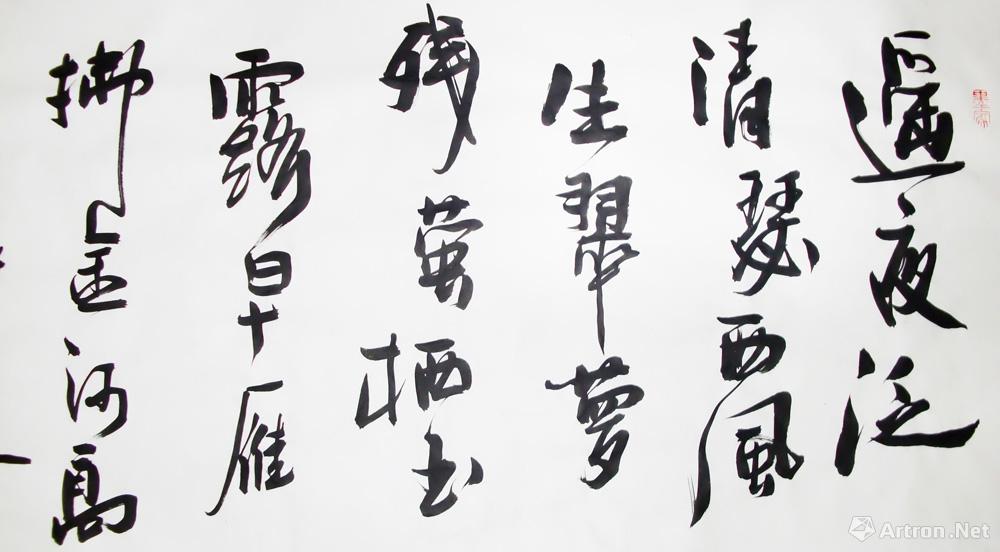 遥夜泛
清瑟西風
生翠萝
残萤栖玉
露早雁
拂金河高
Artron.Net